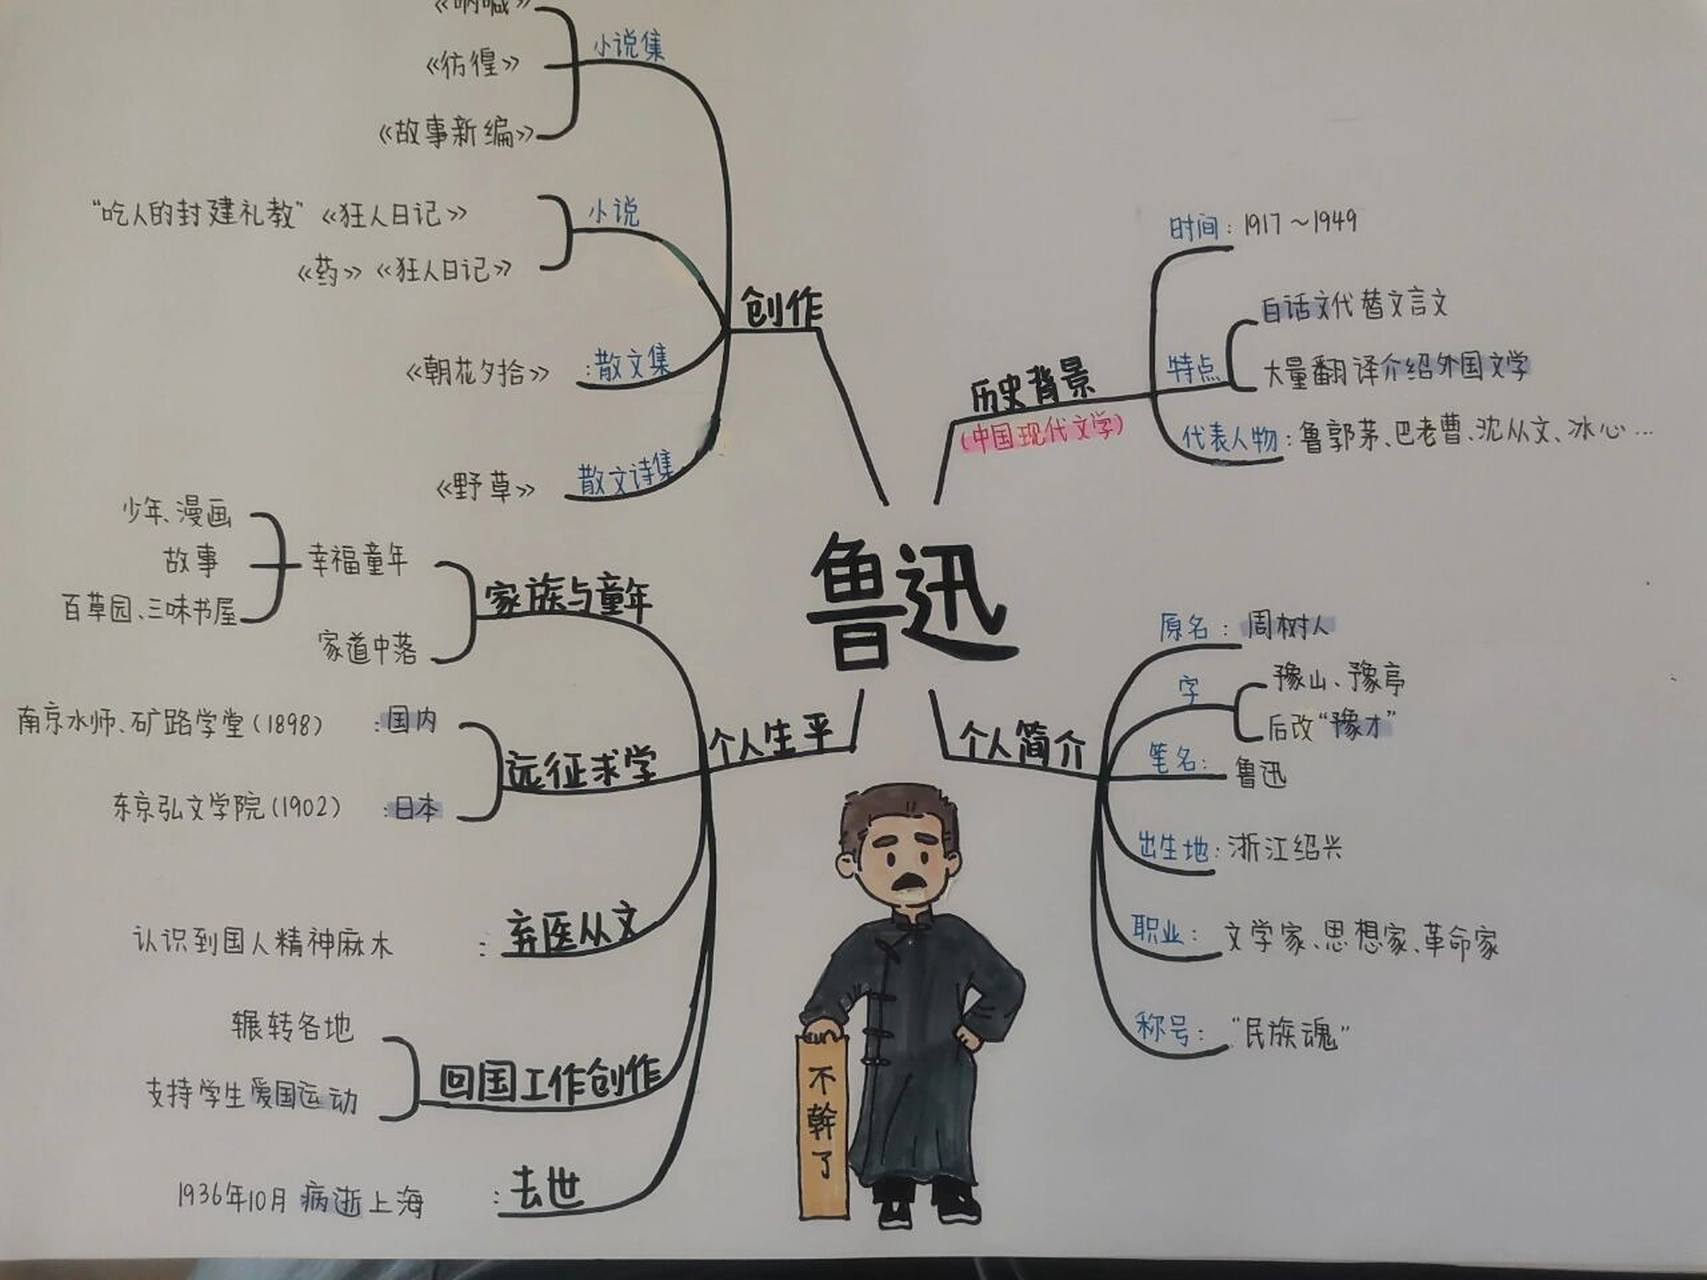 《呐喊》
《彷徨》
《故事新编》
小说集
"吃人的封建礼教"《狂人日记》
《药》《狂人日记》
小说
创作
《朝花夕拾》:散文集
《野草》 散文诗集
历史背景
(中国现代文学)
时间:1917~1949
特点
白话文代替文言文
大量翻译介绍外国文学
代表人物:鲁郭茅、巴老曹、沈从文、冰心…
鲁迅
少年、漫画
故事
百草园、三味书屋
幸福童年
家道中落
家族与童年
南京水师、矿路学堂(1898) :国内
东京弘文学院(1902) :日本
远征求学
个人生平
认识到国人精神麻木 :弃医从文
辗转各地
支持学生爱国运动
回国工作创作
1936年10月病逝上海 :去世
个人简介
原名:周树人
字
豫山、豫亭
后改"豫才"
笔名:鲁迅
出生地:浙江绍兴
职业:文学家、思想家、革命家
称号:"民族魂"
不幹了